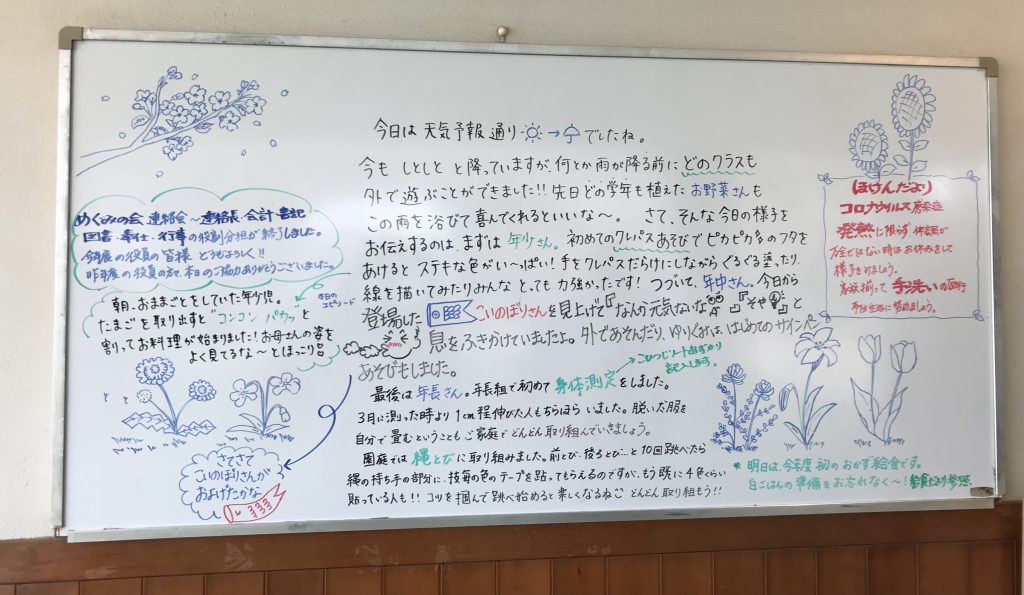 今日は天気予報通り☀→☂でしたね。
今もしとしとと降っていますが、何とか雨が降る前にどのクラスも
外で遊ぶことができました!!先日どの学年も植えたお野菜さんも
この雨を浴びて喜んでくれるといいな～。さて、そんな今日の様子を
お伝えするのは、まずは年少さん。初めてのクレパスあそびでピカピカのフタを
あけるとステキな色がい～っぱい!手をクレパスだらけにしながらぐるぐる塗ったり、
線を描いてみたりみんなとっても力強かったです!つづいて、年中さん。今日から
登場したこいのぼりさんを見上げて『なんか元気ないな』『そや!』と
息をふきかけていましたよ。外であそんだり、ゆりぐみは、はじめてのサインペン
あそびもしました。
最後は年長さん。年長組で初めて身体測定をしました。
こひつじノートあずかり
記入します。
3月に測った時より1cm程伸びた人もちらほらいました。脱いだ服を
自分で畳むということもご家庭でどんどん取り組んでいきましょう。
園庭では縄とびに取り組みました。前とび、後ろとび…と10回跳べたら
縄の持ち手の部分に、技毎の色のテープを貼ってもらえるのですが、もう既に4色くらい
貼っている人も!!コツを掴んで跳べ始めると楽しくなるね♡どんどん取り組もう!!
めぐみの会 連絡会～連絡長・会計・書記
図書・奉仕・行事の役割分担が終了しました。
今年度の役員の皆様 どうぞよろしく!!
昨年度の役員の方々 本日のご協力ありがとうございました。
本日の
エピソード
朝、おままごとをしていた年少児。
たまごを取り出すと"コンコン パカッ"と
割ってお料理が始まりました!お母さんの姿を
よく見てるな～とほっこり
さてさて
こいのぼりさんが
およげたかな
ほけんだより
コロナウイルス感染症
発熱に限らず 体調が
万全ではない時はお休みをして
様子を見ましょう。
家族揃って手洗いの励行
予防生活に努めましょう。
＊明日は、今年度初のおかず給食です。
白ごはんの準備をお忘れなく～!給食だより参照